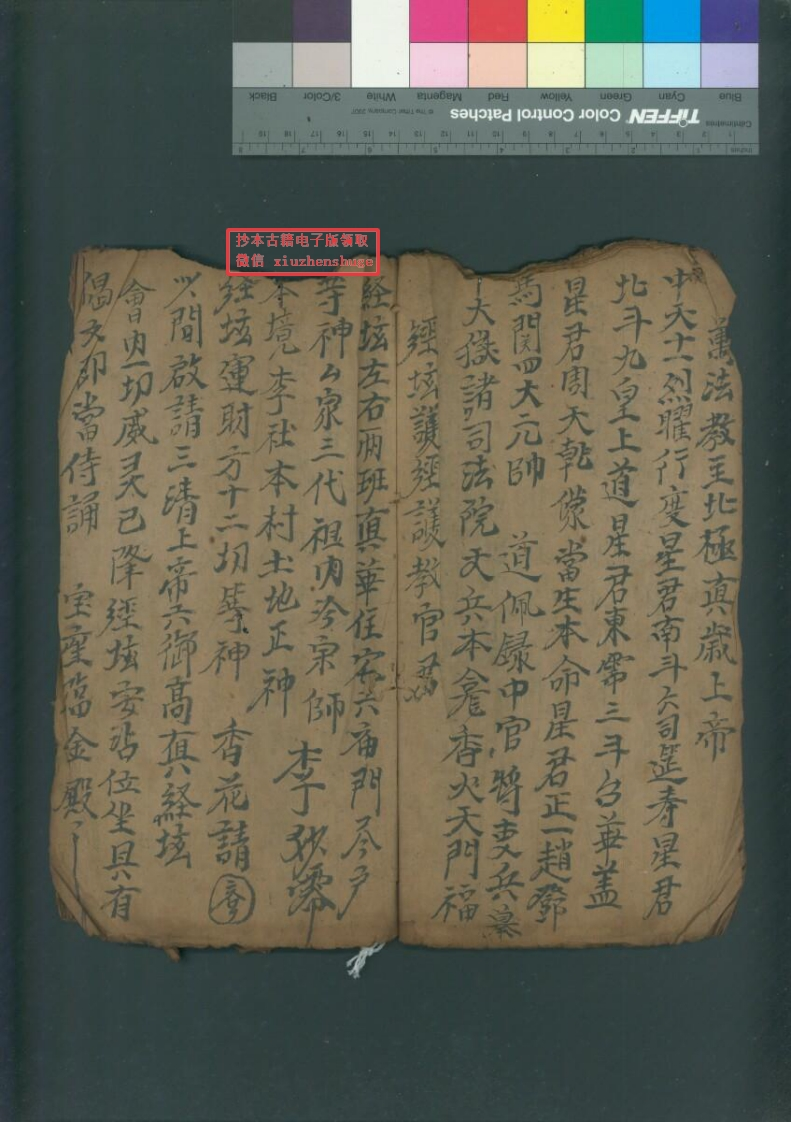 萬法教主北極真武上帝
中天十一烈曜行度星君南斗六司延壽星君
北斗九皇上道星君東西三斗台華盖
星君周天乾象當生本命星君正一趙鄧
馬関四大元帥 道佩録中官將吏兵
大嶽諸司法院天兵本龛香火天門福
經垓護經護教官君
經垓左右両班真華住宅六庙門尽户
等神公家三代祖内冷宗師 李狄
本境李社本村土地正神
經垓運財方十二切等神 香花請
以間啟請三清上帝六御高真経垓
會内一切威灵已降經垓安占位坐具有
偈文即當侍誦 宝座臨金殿
抄本古籍电子版领取
微信 xiuzhenshuge
TIFFEN Color Control Patches
© The Tiffen Company, 2007
Centimetres
Inches
Blue Cyan Green Yellow Red Magenta White 3/Color Black